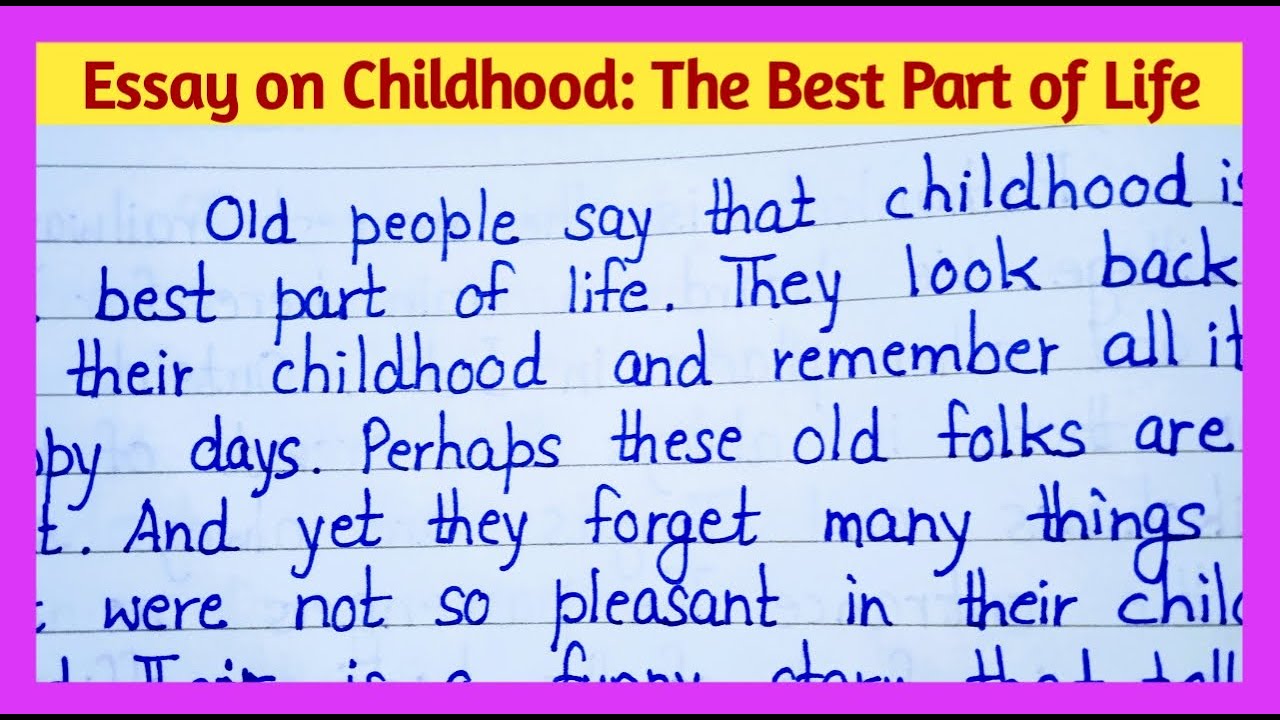 Essay on Childhood: The Best Part of Life
Old people say that childhood is
best part of life. They look back
their childhood and remember all it
py days. Perhaps these old folks are
t. And yet they forget many things
were not so pleasant in their chil
is a funny story that tell